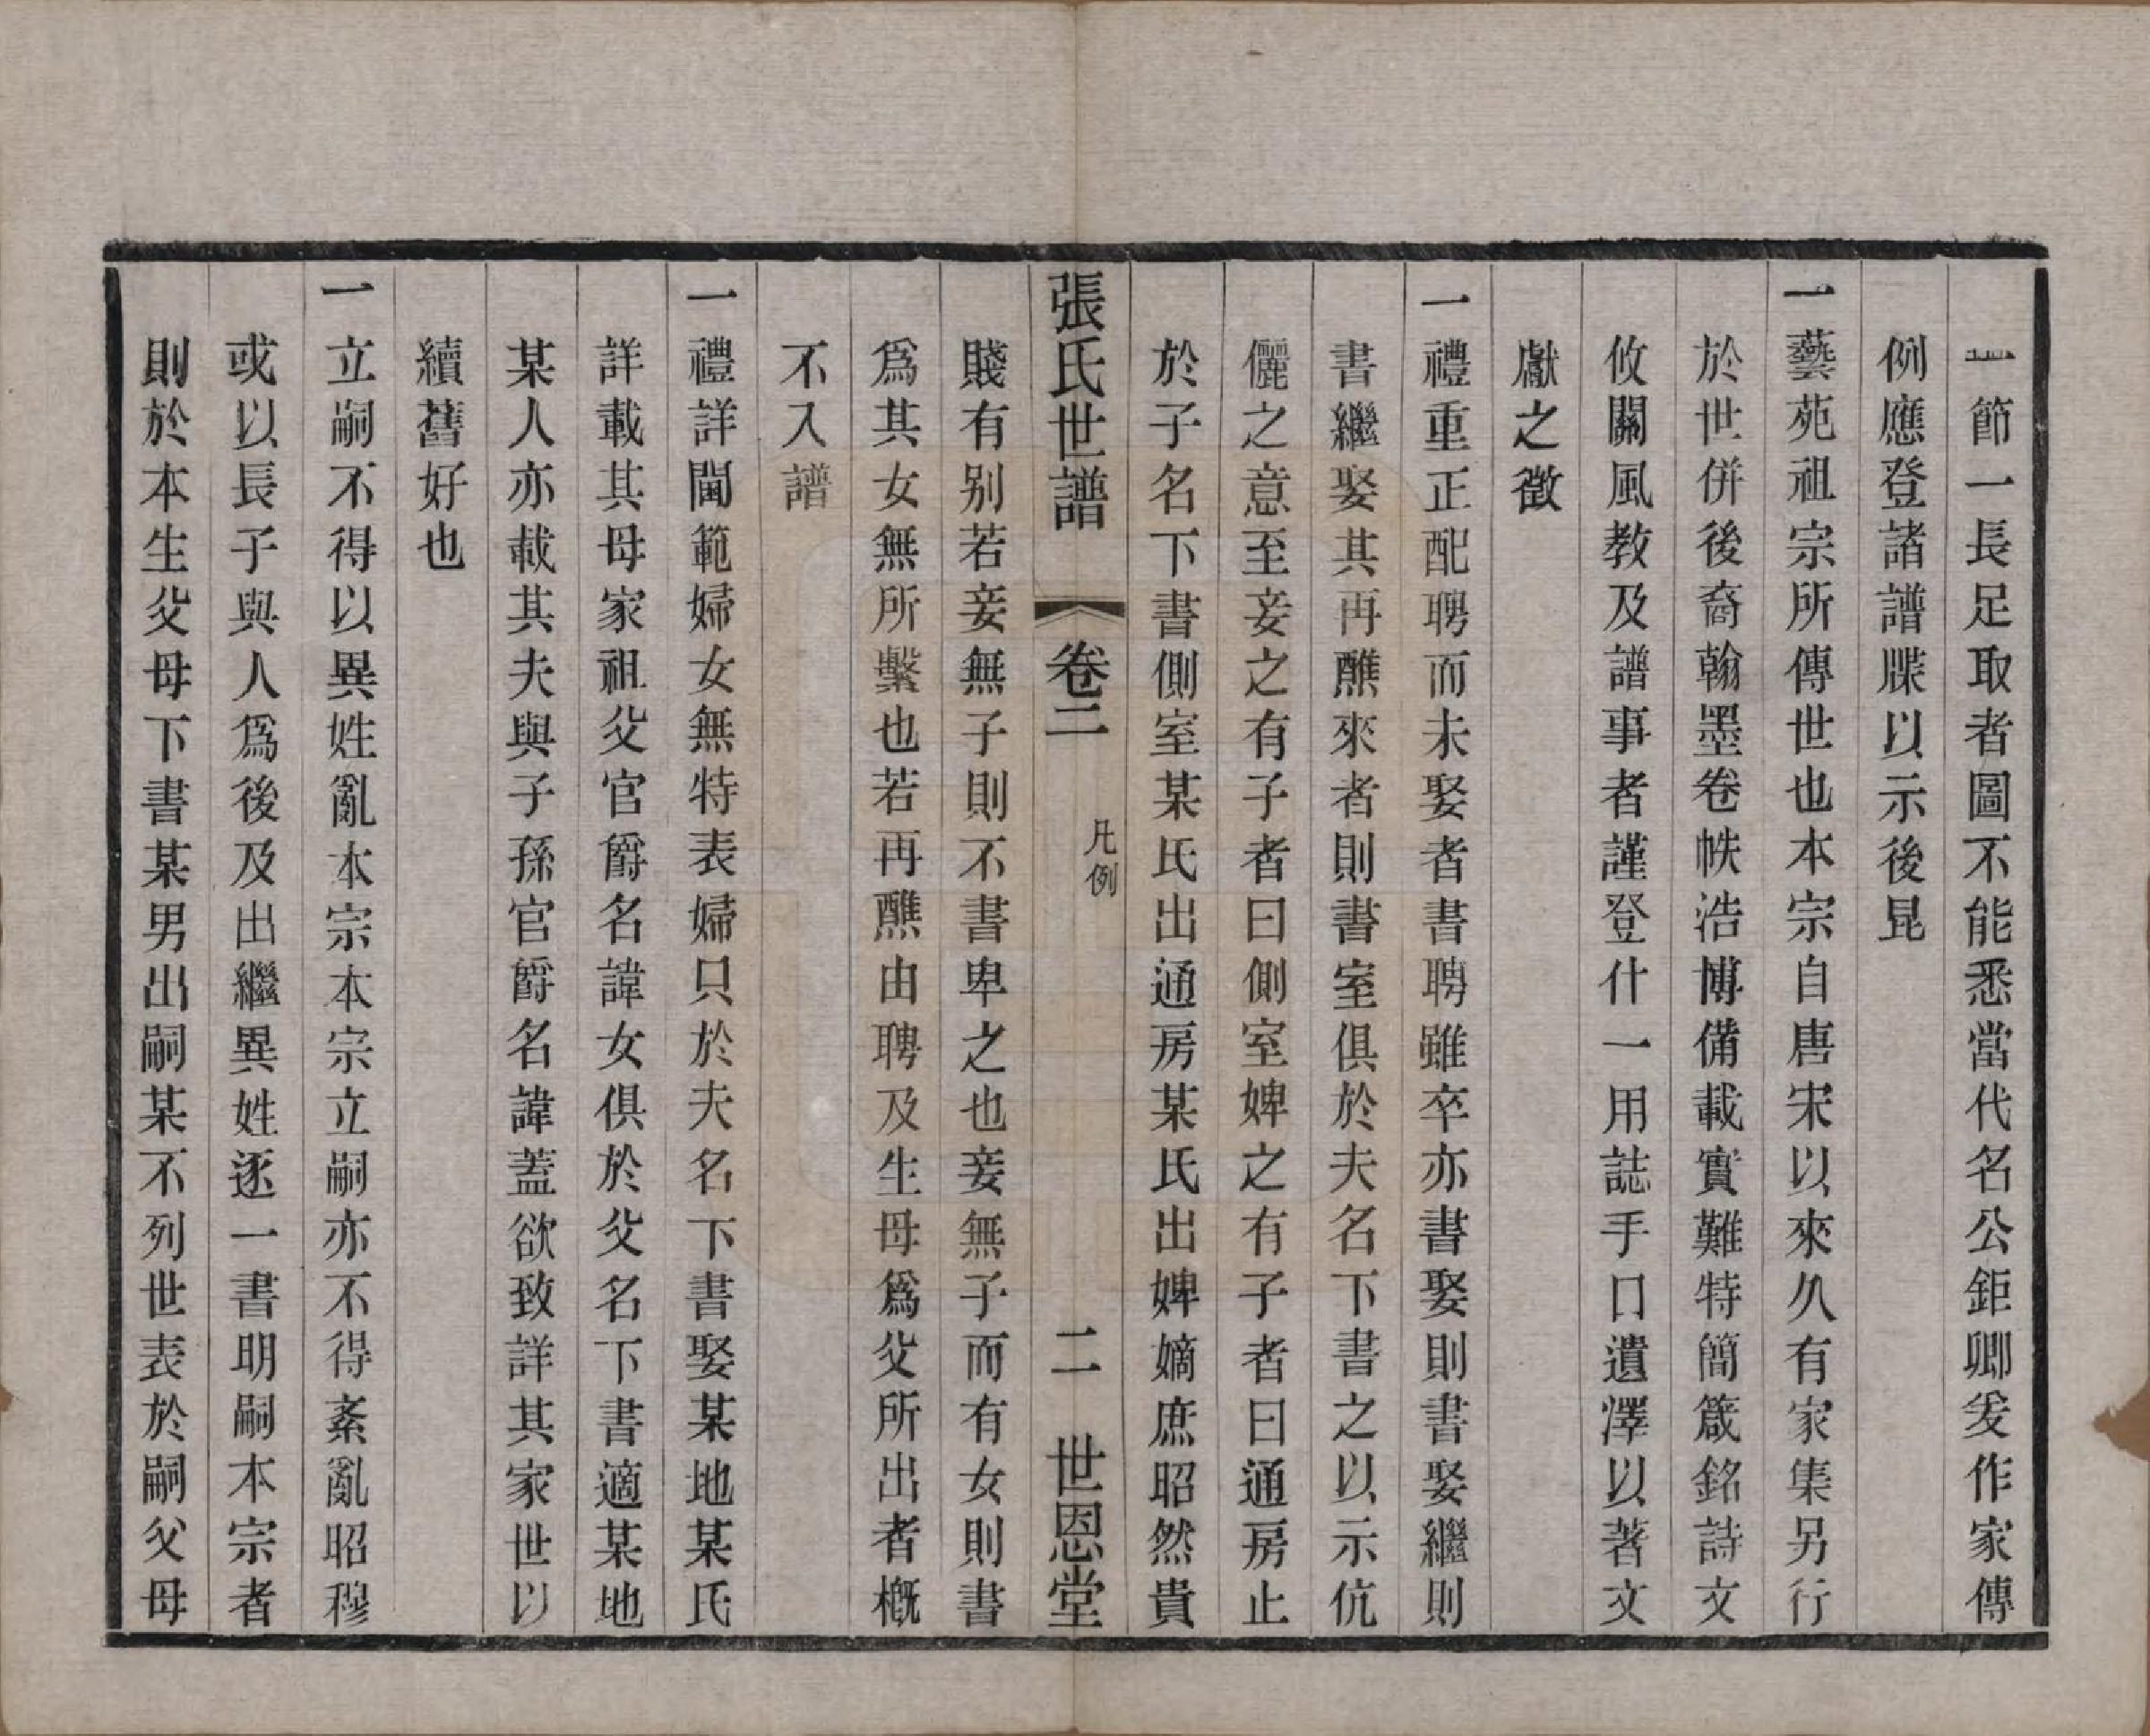 一節一長足取者圖不能悉當代名公鉅卿爰作家傳
例應登諸譜牒以示後昆
一藝苑祖宗所傳世也本宗自唐宋以來久有家集另行
於世併後裔翰墨卷帙浩博備載實難特簡箴銘詩文
攸關風教及譜事者謹登什一用誌手口遺澤以著文
獻之徵
一禮重正配聘而未娶者書聘雖卒亦書娶則書娶繼則
書繼娶其再醮來者則書室俱於夫名下書之以示伉
儷之意至妾之有子者曰側室婢之有子者曰通房止
於子名下書側室某氏出通房某氏出婢嫡庶昭然貴
張氏世譜 卷二 凡例 二 世恩堂
賤有别若妾無子則不書卑之也妾無子而有女則書
爲其女無所繫也若再醮由聘及生母爲父所出者概
不入譜
一禮詳閫範婦女無特表婦只於夫名下書娶某地某氏
詳載其母家祖父官爵名諱女俱於父名下書適某地
某人亦載其夫與子孫官爵名諱蓋欲致詳其家世以
續舊好也
一立嗣不得以異姓亂本宗本宗立嗣亦不得紊亂昭穆
或以長子與人爲後及出繼異姓逐一書明嗣本宗者
則於本生父母下書某男出嗣某不列世表於嗣父母